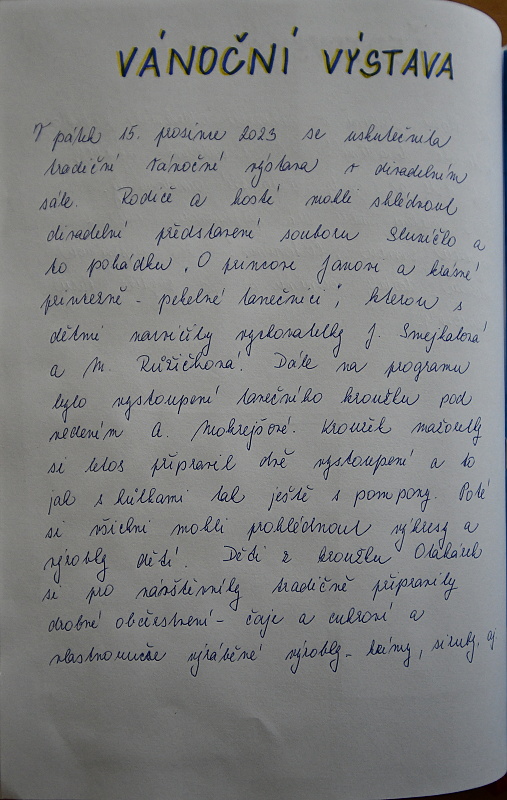 VÁNOČNÍ VÝSTAVA
V pátek 15. prosince 2023 se uskutečnila
tradiční vánoční výstava v divadelním
sále. Rodiče a hosté mohli shlédnout
divadelní představení souboru Sluníčko a
to pohádku "O princovi Janovi a krásné
princezně - pekelné tanečnici", kterou s
dětmi nacvičily vychovatelky J. Smejkalová
a M. Růžičková. Dále na programu
bylo vystoupení tanečního kroužku pod
vedením A. Mokrejšové. Kroužek mažoretky
si letos připravil dvě vystoupení a to
jak s hůlkami tak ještě s pompony. Poté
si všichni mohli prohlédnout výkresy a
výrobky dětí. Děti z kroužku Otakárek
si pro návštěvníky tradičně připravily
drobné občerstvení - čaje a cukroví a
vlastnoručně vyráběné výrobky - krémy, sirupy, aj.